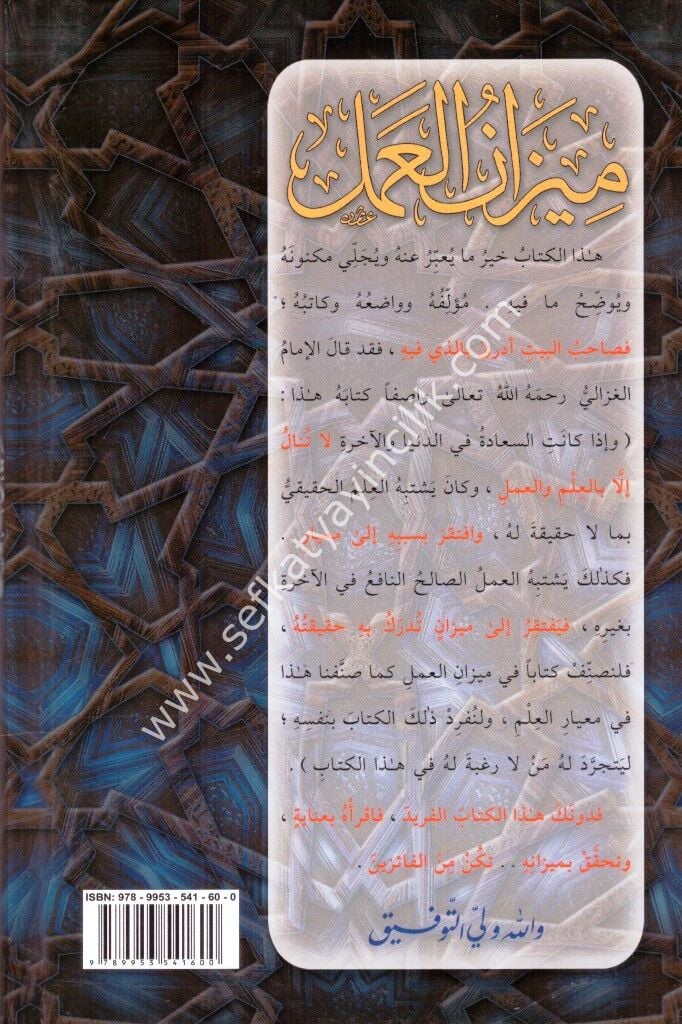 ميزان العمل
هٰذا الكتابُ خيرُ ما يُعبِّرُ عنهُ ويُجَلِّي مكنونَهُ
ويُوضِّحُ ما فيهِ . . مُؤلِّفُهُ وواضعُهُ وكاتبُهُ ؛
فصاحبُ البيتِ أدرىٰ بالذي فيهِ ، فقد قالَ الإمامُ
الغزاليُّ رحمَهُ اللهُ تعالىٰ واصفاً كتابَهُ هٰذا :
( وإذا كانَتِ السعادةُ في الدنيا والآخرةِ لا تُنالُ
إلَّا بالعِلْمِ والعملِ ، وكانَ يَشتبِهُ العلمُ الحقيقيُّ
بما لا حقيقةَ لهُ ، وافتقرَ بسببِهِ إلىٰ معيارٍ . .
فكذٰلكَ يَشتبِهُ العملُ الصالحُ النافعُ في الآخرةِ
بغيرِهِ ، فيَفتقِرُ إلىٰ ميزانٍ تُدرَكُ بهِ حقيقتُهُ ،
فلنصنِّفْ كتاباً في ميزانِ العملِ كما صنَّفنا هٰذا
في معيارِ العِلْمِ ، ولنُفرِدْ ذٰلكَ الكتابَ بنفسِهِ ؛
ليَتجرَّدَ لهُ مَنْ لا رغبةَ لهُ في هٰذا الكتابِ ) .
فدونَكَ هٰذا الكتابَ الفريدَ ، فاقرأْهُ بعنايةٍ ،
وتحقَّقْ بميزانِهِ . . تكُنْ مِنَ الفائزينَ .
والله وليّ التّوفيق
ISBN: 978 - 9953 - 541 - 60 - 0
9 789953 541600
www.sefkatyayincilik.com